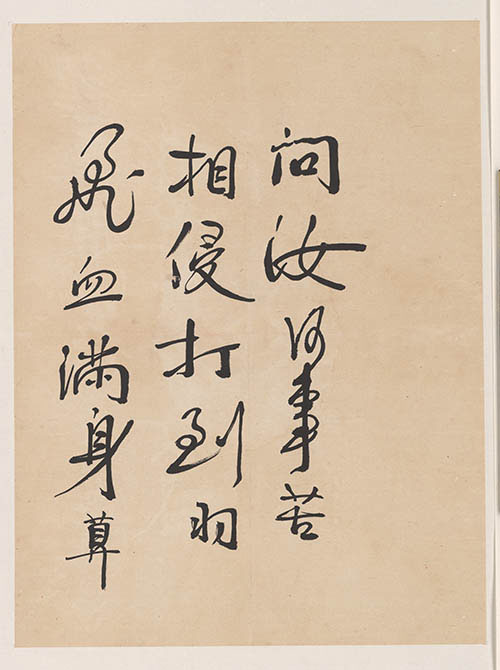 問汝何事苦
相侵打到羽
飛血滿身算